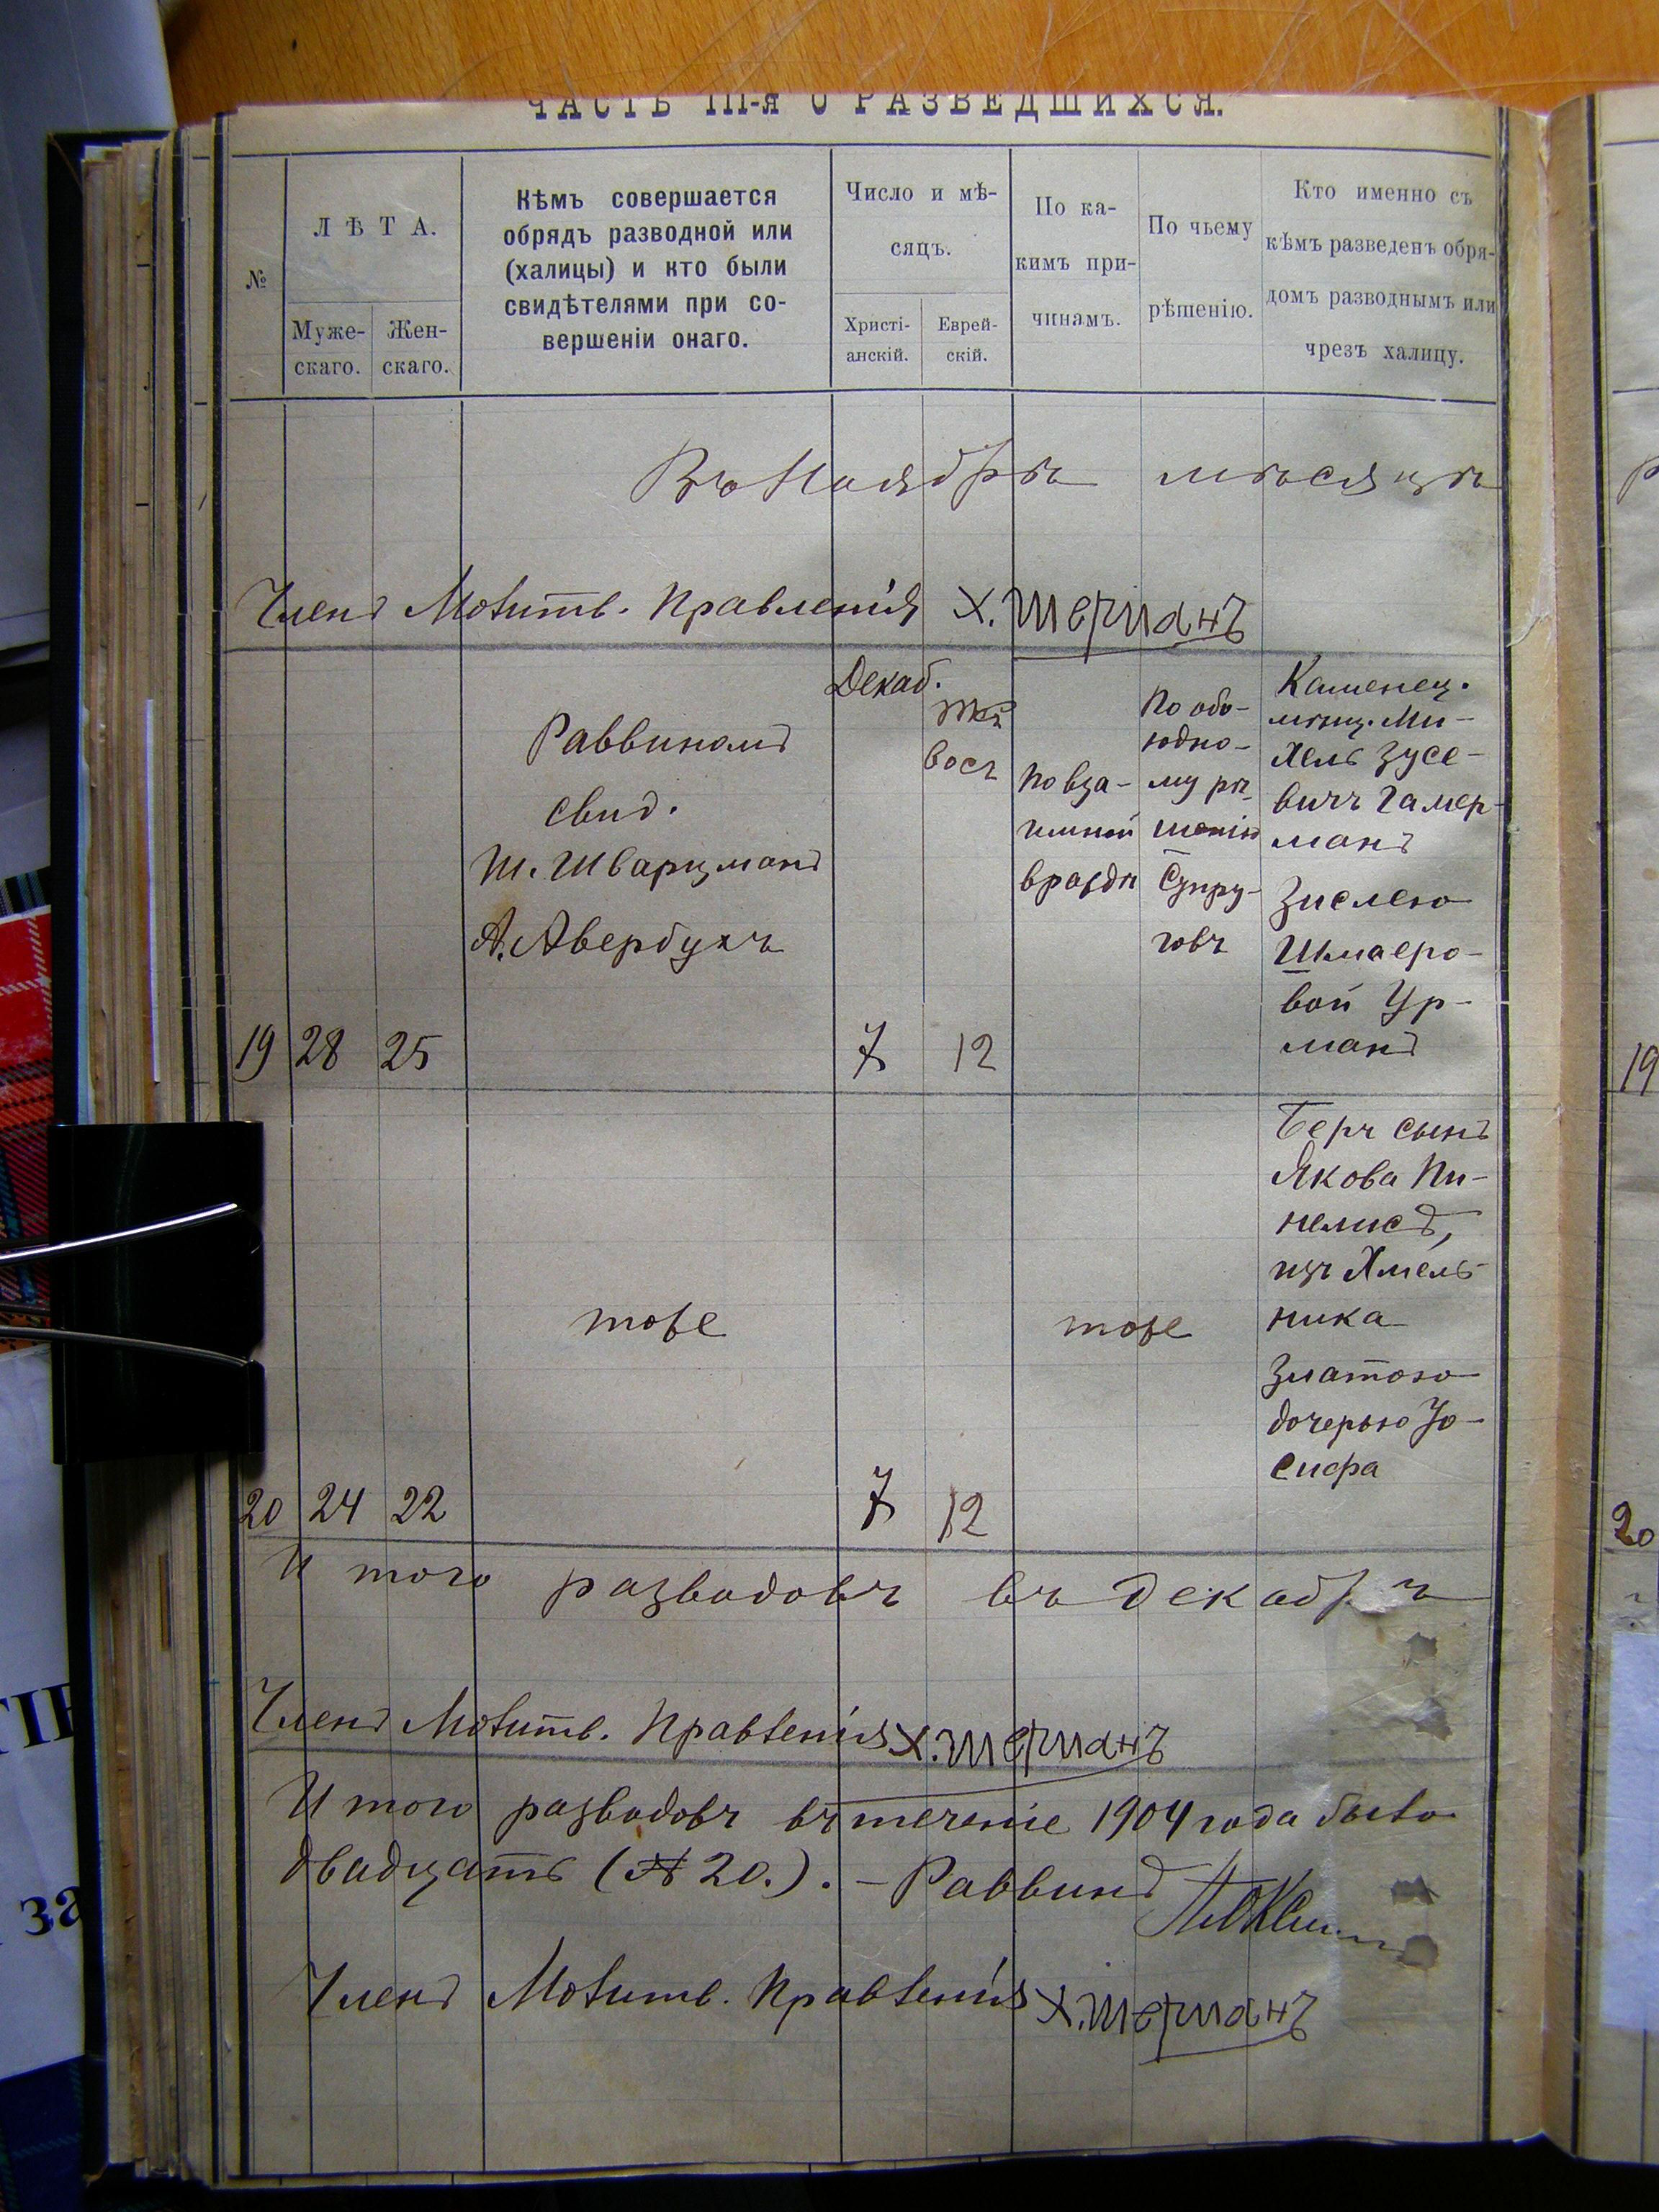 ЧАСТЬ III-я О РАЗВЕДШИХСЯ.
№
ЛѢТА.
Муже-
скаго.
Жен-
скаго.
Кѣмъ совершается
обрядъ разводной или
(халицы) и кто были
свидѣтелями при со-
вершеніи онаго.
Число и мѣ-
сяцъ.
Христі-
анскій.
Еврей-
скій.
По ка-
кимъ при-
чинамъ.
По чьему
рѣшенію.
Кто именно съ
кѣмъ разведенъ обря-
домъ разводнымъ или
чрезъ халицу.
Въ Ноябрѣ мѣсяцѣ
Членъ Молитв. Правленія Х. Шерманъ
19 28 25
Раввиномъ
свид.
Ш. Шварцманъ
А. Авербухъ
Декаб.
7
12
По вза-
имной
враждѣ
По обо-
юдно-
му рѣ-
шенію
Супру-
говъ
Каменец.
мѣщ. Ми-
хель Зусе-
вичъ Гамер-
манъ
Зислею
Шмаеро-
вой Ур-
манъ
19
20 24 22
тоже
7 12
тоже
Беръ сынъ
Якова Пи-
нелисъ,
изъ Хмель-
ника
Златою
дочерью Іо-
сифа
20
Итого разводовъ въ Декабрѣ
Членъ Молитв. Правленія Х. Шерманъ
Итого разводовъ въ теченіе 1904 года было
двадцать (№ 20.). – Раввинъ
Членъ Молитв. Правленія Х. Шерманъ